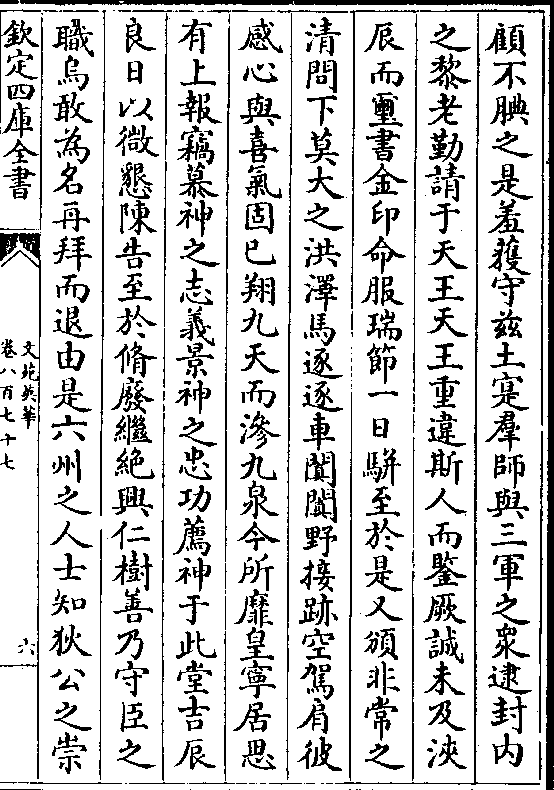 顧不腆之是羞獲守兹土寔羣師與三軍之衆逮封内
之黎老勤請于天王天王重違斯人而鑒厥誠未及浹
辰而璽書金印命服瑞節一日駢至於是又頒非常之
清問下莫大之洪澤馬逐逐車闐闐野接跡空駕肩彼
感心與喜氣固已翔九天而滲九泉今所靡皇寧居思
有上報竊慕神之志義景神之忠功薦神于此堂吉辰
良日以微懇陳告至於脩廢繼絶興仁樹善乃守臣之
職烏敢為名再拜而退由是六州之人士知狄公之崇
欽定四庫全書
文苑英華
卷八百七十七
六